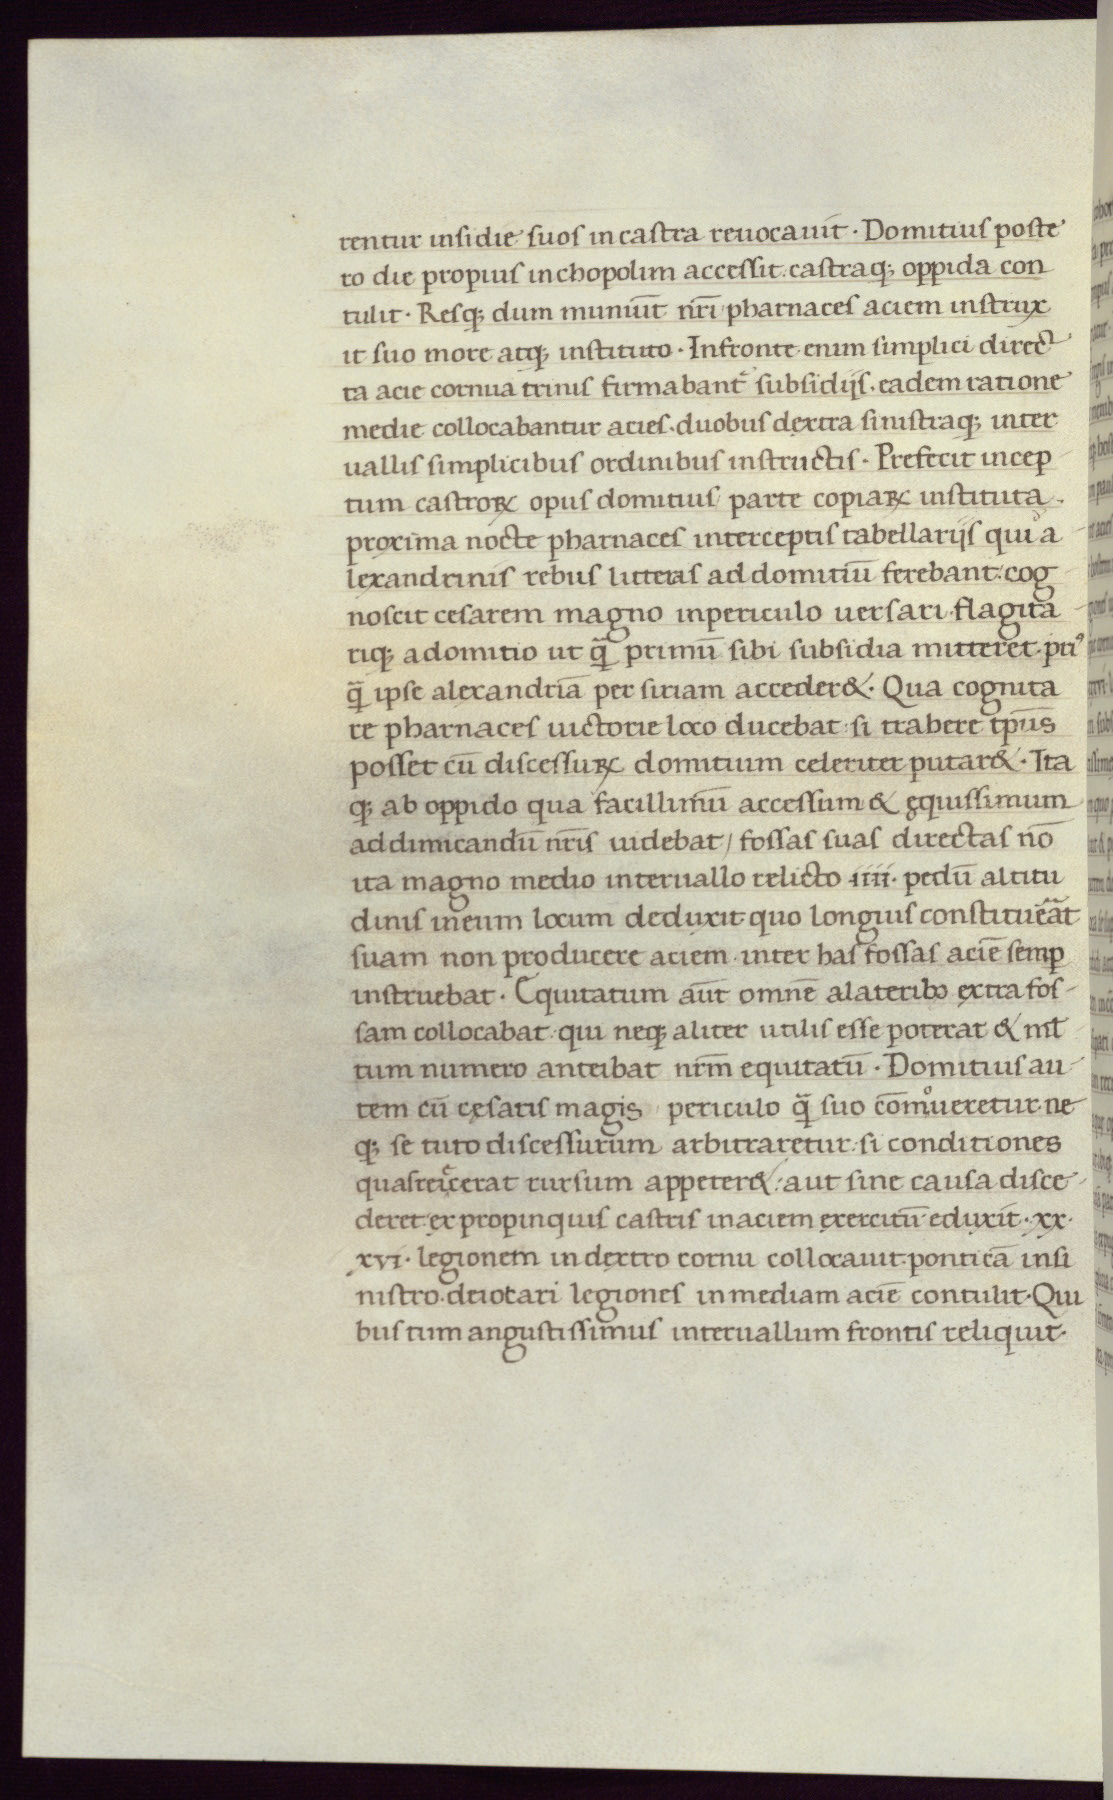 rentur insidie suos in castra reuocauit · Domitius poste
ro die propius inchopolim accessit castraq; oppida con
tulit · Resq; dum muniūt nr̄i pharnaces aciem instrux
it suo more atq; instituto · Infronte enim simplici direc
ta acie cornua trinis firmabant᷑ subsidijs · eadem ratione
medie collocabantur acies · duobus dextra sinistraq; inter
uallis simplicibus ordinibus instructis · Prefecit incep
tum castroꝝ opus domitius parte copiaꝝ instituta ·
proxima nocte pharnaces interceptis tabellarijs qui a
lexandrinis rebus litteras ad domitiū ferebant cog
noscit cesarem magno inpericulo uersari flagita
riq; adomitio ut q̄ primū sibi subsidia mitteret priꝰ
q̄ ipse alexandriā per siriam acceder& · Qua cognita
re pharnaces uictorie loco ducebat si trahere tp̄us
posset cū discessuꝝ domitium celeriter putar& · Ita
q; ab oppido qua facillimū accessum & ęquissimum
addimicandū nr̄is uidebat / fossas suas directas nō
ita magno medio interuallo relicto iiii · pedū altitu
dinis ineum locum deduxit quo longius constituēat
suam non producere aciem · inter has fossas aciē semꝑ
instruebat · Equitatum aūt omnē alateribꝫ extra fos
sam collocabat qui neq; aliter utilis esse poterat & ml̄
tum numero anteibat nr̄m equitatū · Domitius au
tem cū cęsaris magis periculo q̄ suo cōmoueretur ne
q; se tuto discessurum arbitraretur si conditiones
quas reiecerat rursum appeter& : aut sine causa disce
deret ex propinquis castris inaciem exercitū eduxit · xx
xvi · legionem in dextro cornu collocauit ponticā insi
nistro deiotari legiones inmediam aciē contulit · Qui
bus tum angustissimus interuallum frontis reliquit ·